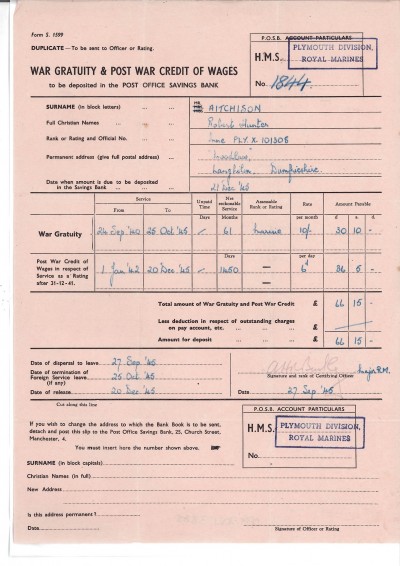 Form S. 1599
DUPLICATE—To be sent to Officer or Rating.
P.O.S.B. ACCOUNT PARTICULARS
H.M.S. PLYMOUTH DIVISION,
ROYAL MARINES
No. 1844
WAR GRATUITY & POST WAR CREDIT OF WAGES
to be deposited in the POST OFFICE SAVINGS BANK
SURNAME (in block letters) ... ... AITCHISON
Full Christian Names ... ... ... Robert Hunter
Rank or Rating and Official No. ... PLY.X.101308
Permanent address (give full postal address) ...
Langholm, Dumfriesshire
Date when amount is due to be deposited
in the Savings Bank ... ... ... 21 Dec '45
Service Unpaid Time Net reckonable Service Assessable Rank or Rating Rate Amount Payable
From To
Days Months per month £ s. d.
War Gratuity 24 Sep '40 25 Oct '45 61 Marine 10/- 30 10 -
Post War Credit of
Wages in respect of
Service as a Rating
after 31-12-41.
Days per day
1 Jan '42 20 Dec '45 1450 — 6d 36 5 -
Total amount of War Gratuity and Post War Credit £ 66 15 -
Less deduction in respect of outstanding charges
on pay account, etc. ... ... ... £
Amount for deposit ... £ 66 15 -
Date of dispersal to leave 27 Sep '45
Date of termination of
Foreign Service leave 25 Oct '45
(if any)
Date of release ... 20 Dec '45
Major R.M.
Signature and rank of Certifying Officer
Date 27 Sep '45
Cut along this line
P.O.S.B. ACCOUNT PARTICULARS
H.M.S. PLYMOUTH DIVISION,
ROYAL MARINES
No.
If you wish to change the address to which the Bank Book is to be sent,
detach and post this slip to the Post Office Savings Bank, 25, Church Street,
Manchester, 4.
You must insert here the number shown above.
SURNAME (in block capitals)
Christian Names (in full)
New Address
Is this address permanent?
Date
Signature of Officer or Rating